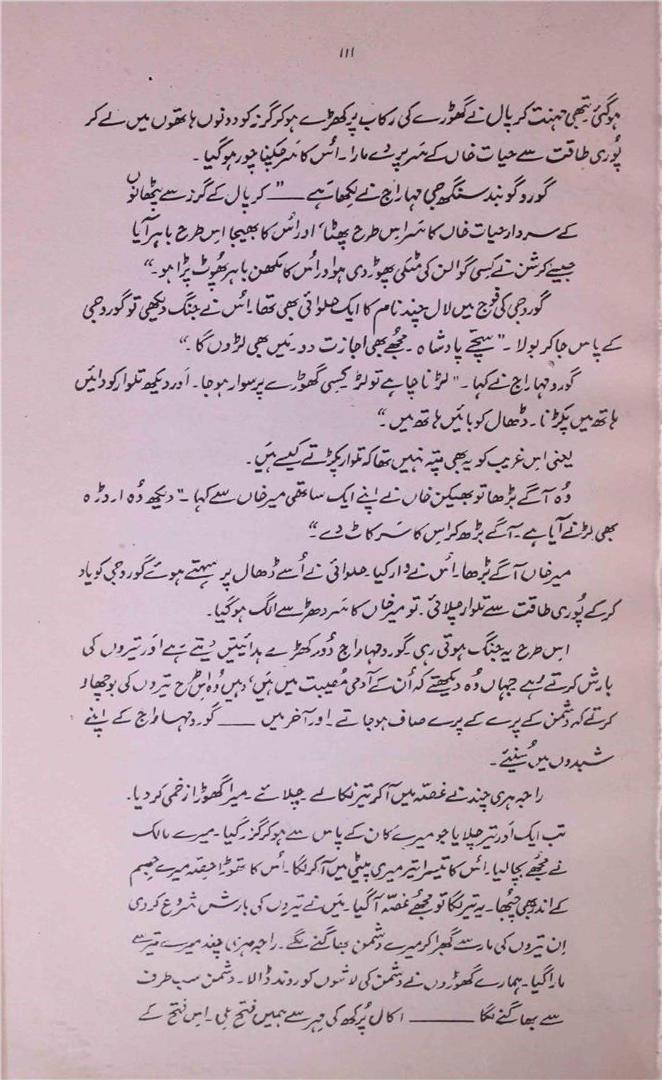 ۱۱۱
ہوگئی تبھی مہنت کرپال نے گھوڑے کی رکاب پر کھڑے ہو کر گرز کو دونوں ہاتھوں میں لے کر
پُوری طاقت سے حیات خاں کے سر پر دے مارا۔ اُس کا سر چکنا چور ہوگیا۔
گورو گوبند سنگھ جی مہاراج نے لکھا ہے —— "کرپال کے گرز سے پٹھانوں
کے سردار حیات خاں کا سر اس طرح پھٹا، اور اُس کا بھیجا اس طرح باہر آیا
جیسے کرشن نے کسی گوالن کی مٹکی پھوڑ دی ہو اور اُس کا مکھن باہر پھوٹ پڑا ہو۔"
گورو جی کی فوج میں لال چند نام کا ایک حلوائی بھی تھا۔ اُس نے جنگ دیکھی تو گورو جی
کے پاس جا کر بولا۔ "سچّے پادشاہ۔ مجھے بھی اجازت دو۔ میں بھی لڑوں گا۔"
گورو مہاراج نے کہا۔ "لڑنا چاہے تو لڑ کسی گھوڑے پر سوار ہو جا۔ اور دیکھ تلوار کو دائیں
ہاتھ میں پکڑنا۔ ڈھال کو بائیں ہاتھ میں۔"
یعنی اس غریب کو یہ بھی پتہ نہیں تھا کہ تلوار پکڑتے کیسے ہیں۔
وُہ آگے بڑھا تو بھیکن خاں نے اپنے ایک ساتھی میر خاں سے کہا۔ "دیکھ وُہ اروڑہ
بھی لڑنے آیا ہے۔ آگے بڑھ کر اس کا سر کاٹ دے۔"
میر خاں آگے بڑھا۔ اُس نے وار کیا۔ حلوائی نے اُسے ڈھال پر سہتے ہوئے گورو جی کو یاد
کر کے پُوری طاقت سے تلوار چلائی۔ تو میر خاں کا سر دھڑ سے الگ ہوگیا۔
اس طرح یہ جنگ ہوتی رہی۔ گورو مہاراج دُور کھڑے ہدائیتیں دیتے رہے اور تیروں کی
بارش کرتے رہے جہاں وُہ دیکھتے کہ اُن کے آدمی مُصیبت میں ہیں، وہیں وُہ اس طرح تیروں کی بوچھاڑ
کرتے کہ دشمن کے پرے کے پرے صاف ہو جاتے۔ اور آخر میں —— گورو مہاراج کے اپنے
شبدوں میں سُنیئے۔
راجہ ہری چند نے غصّہ میں آکر تیر نکالے۔ چلائے۔ میرا گھوڑا زخمی کر دیا۔
تب ایک اور تیر چلایا جو میرے کان کے پاس سے ہو کر گزر گیا۔ میرے مالک
نے مجھے بچا لیا۔ اُس کا تیسرا تیر میری پیٹی میں آکر لگا۔ اُس کا تھوڑا حصّہ میرے جسم
کے اندر بھی چُبھا۔ یہ تیر لگا تو مجھے غصّہ آگیا۔ میں نے تیروں کی بارش شروع کر دی
اِن تیروں کی مار سے گھبرا کر میرے دشمن بھاگنے لگے۔ راجہ ہری چند میرے تیر سے
مارا گیا۔ ہمارے گھوڑوں نے دشمن کی لاشوں کو روند ڈالا۔ دشمن سب طرف
سے بھاگنے لگا —— اکال پُرکھ کی مہر سے ہمیں فتح ملی۔ اس فتح کے